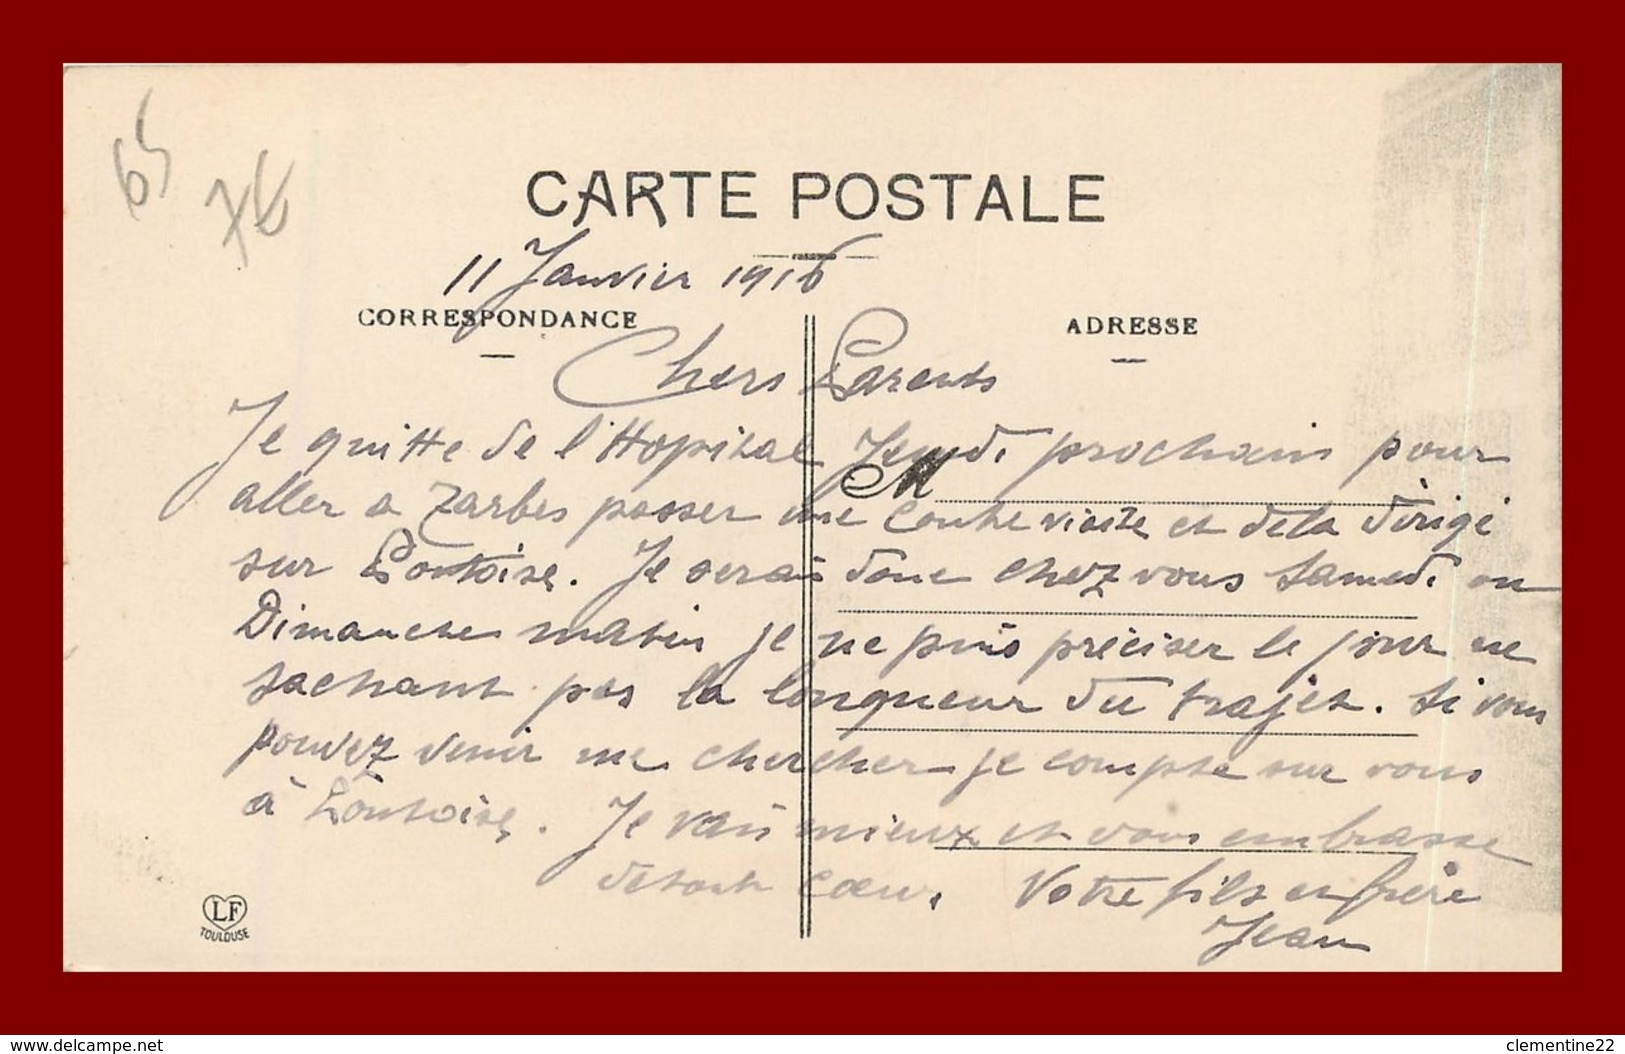 65
7€
CARTE POSTALE
11 Janvier 1916
CORRESPONDANCE
ADRESSE
Chers Parents
Je quitte de l'Hopital Jeudi prochain pour
M
aller a Tarbes passer une contre visite et dela dirigé
sur Pontoise. Je serai donc chez vous Samedi ou
Dimanche matin je ne puis préciser le jour ne
sachant pas la longueur du trajet. Si vous
pouvez venir me chercher je compte sur vous
à Pontoise. Je vais mieux et vous embrasse
de tout cœur. Votre fils et frère
Jean
LF
TOULOUSE
www.delcampe.net
clementine22